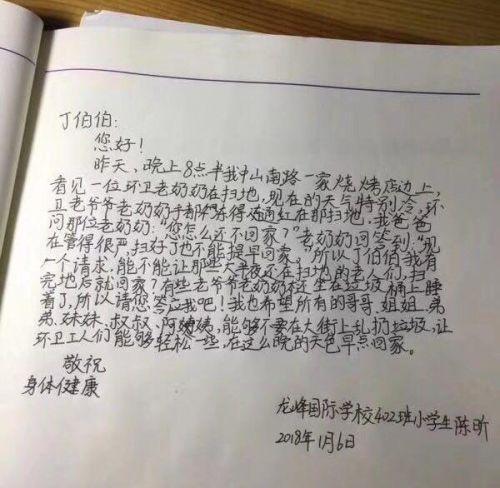 丁伯伯:
您好!
昨天,晚上8点半我中山南路一家烧烤店边上,
看见一位环卫老奶奶在扫地,现在的天气特别冷,环
卫老爷爷老奶奶手都冻得通红在那扫地,我爸爸
问那位老奶奶:"您怎么还不回家?"老奶奶回答到:"现
在管得很严,扫好了也不能提早回家。"所以丁伯伯我有
一个请求,能不能让那些大半夜还在扫地的老人们,扫
完地后就回家?有些老爷爷老奶奶还坐在垃圾桶上睡
着了,所以请您答应我吧!我也希望所有的哥哥、姐姐、弟
弟、妹妹、叔叔、阿姨,能够不要在大街上乱扔垃圾,让
环卫工人们能够轻松一些,在这么晚的天色早点回家。
敬祝
身体健康
龙峰国际学校402班小学生陈昕
2018年1月6日